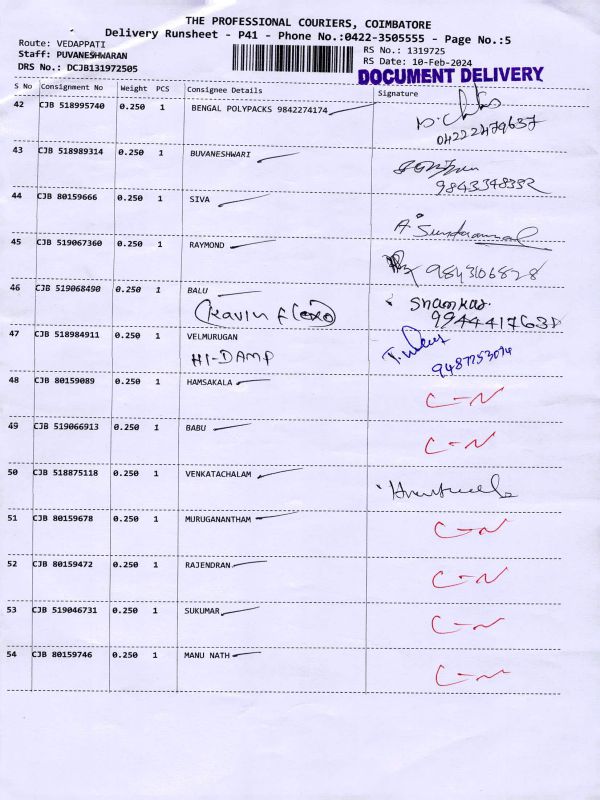 THE PROFESSIONAL COURIERS, COIMBATORE
Delivery Runsheet - P41 - Phone No.:0422-3505555 - Page No.:5
Route: VEDAPPATI
Staff: PUVANESHWARAN
DRS No.: DCJB131972505
RS No.: 1319725
RS Date: 10-Feb-2024
DOCUMENT DELIVERY
S No Consignment No Weight PCS Consignee Details Signature
42 CJB 518995740 0.250 1 BENGAL POLYPACKS 9842274174
04222479637
43 CJB 518989314 0.250 1 BUVANESHWARI
9843348332
44 CJB 80159666 0.250 1 SIVA
A. Sundarammal
45 CJB 519067360 0.250 1 RAYMOND 9843106828
46 CJB 519068490 0.250 1 BALU Shankar
Kavin flexo
47 CJB 518984911 0.250 1 VELMURUGAN
HI-DAMP
48 CJB 80159089 0.250 1 HAMSAKALA C-N
49 CJB 519066913 0.250 1 BABU C-N
50 CJB 518875118 0.250 1 VENKATACHALAM
51 CJB 80159678 0.250 1 MURUGANANTHAM C-N
52 CJB 80159472 0.250 1 RAJENDRAN C-N
53 CJB 519046731 0.250 1 SUKUMAR C-N
54 CJB 80159746 0.250 1 MANU NATH C-N